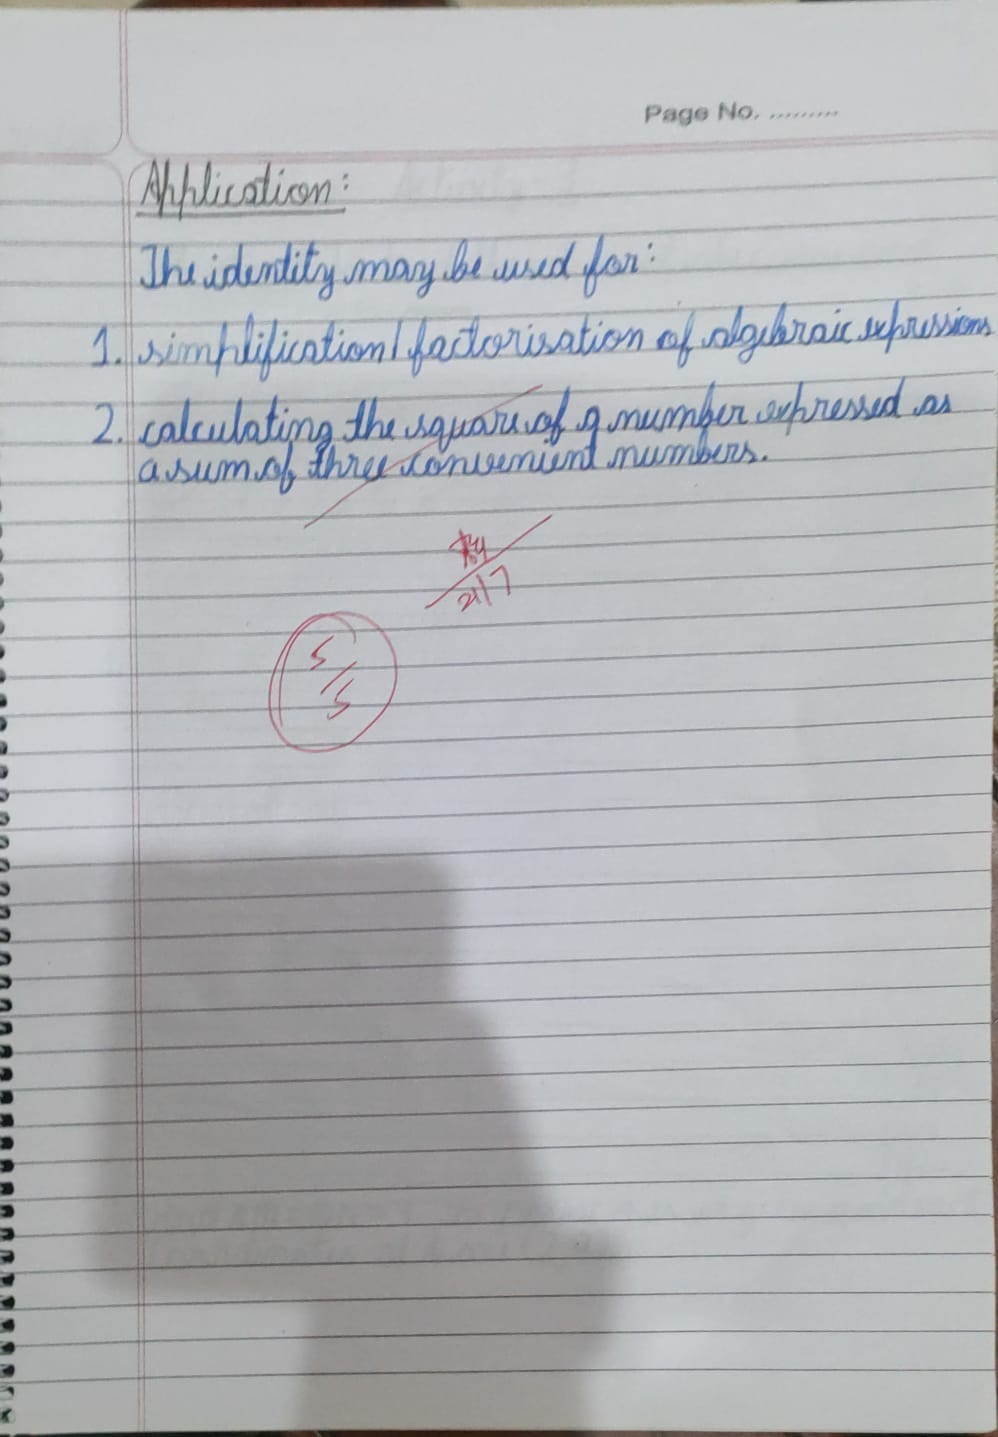 Page No. .........
Application:
The identity may be used for:
1. simplification/factorisation of algebraic expressions
2. calculating the square of a number expressed as
a sum of three convenient numbers.
21/7
5/5